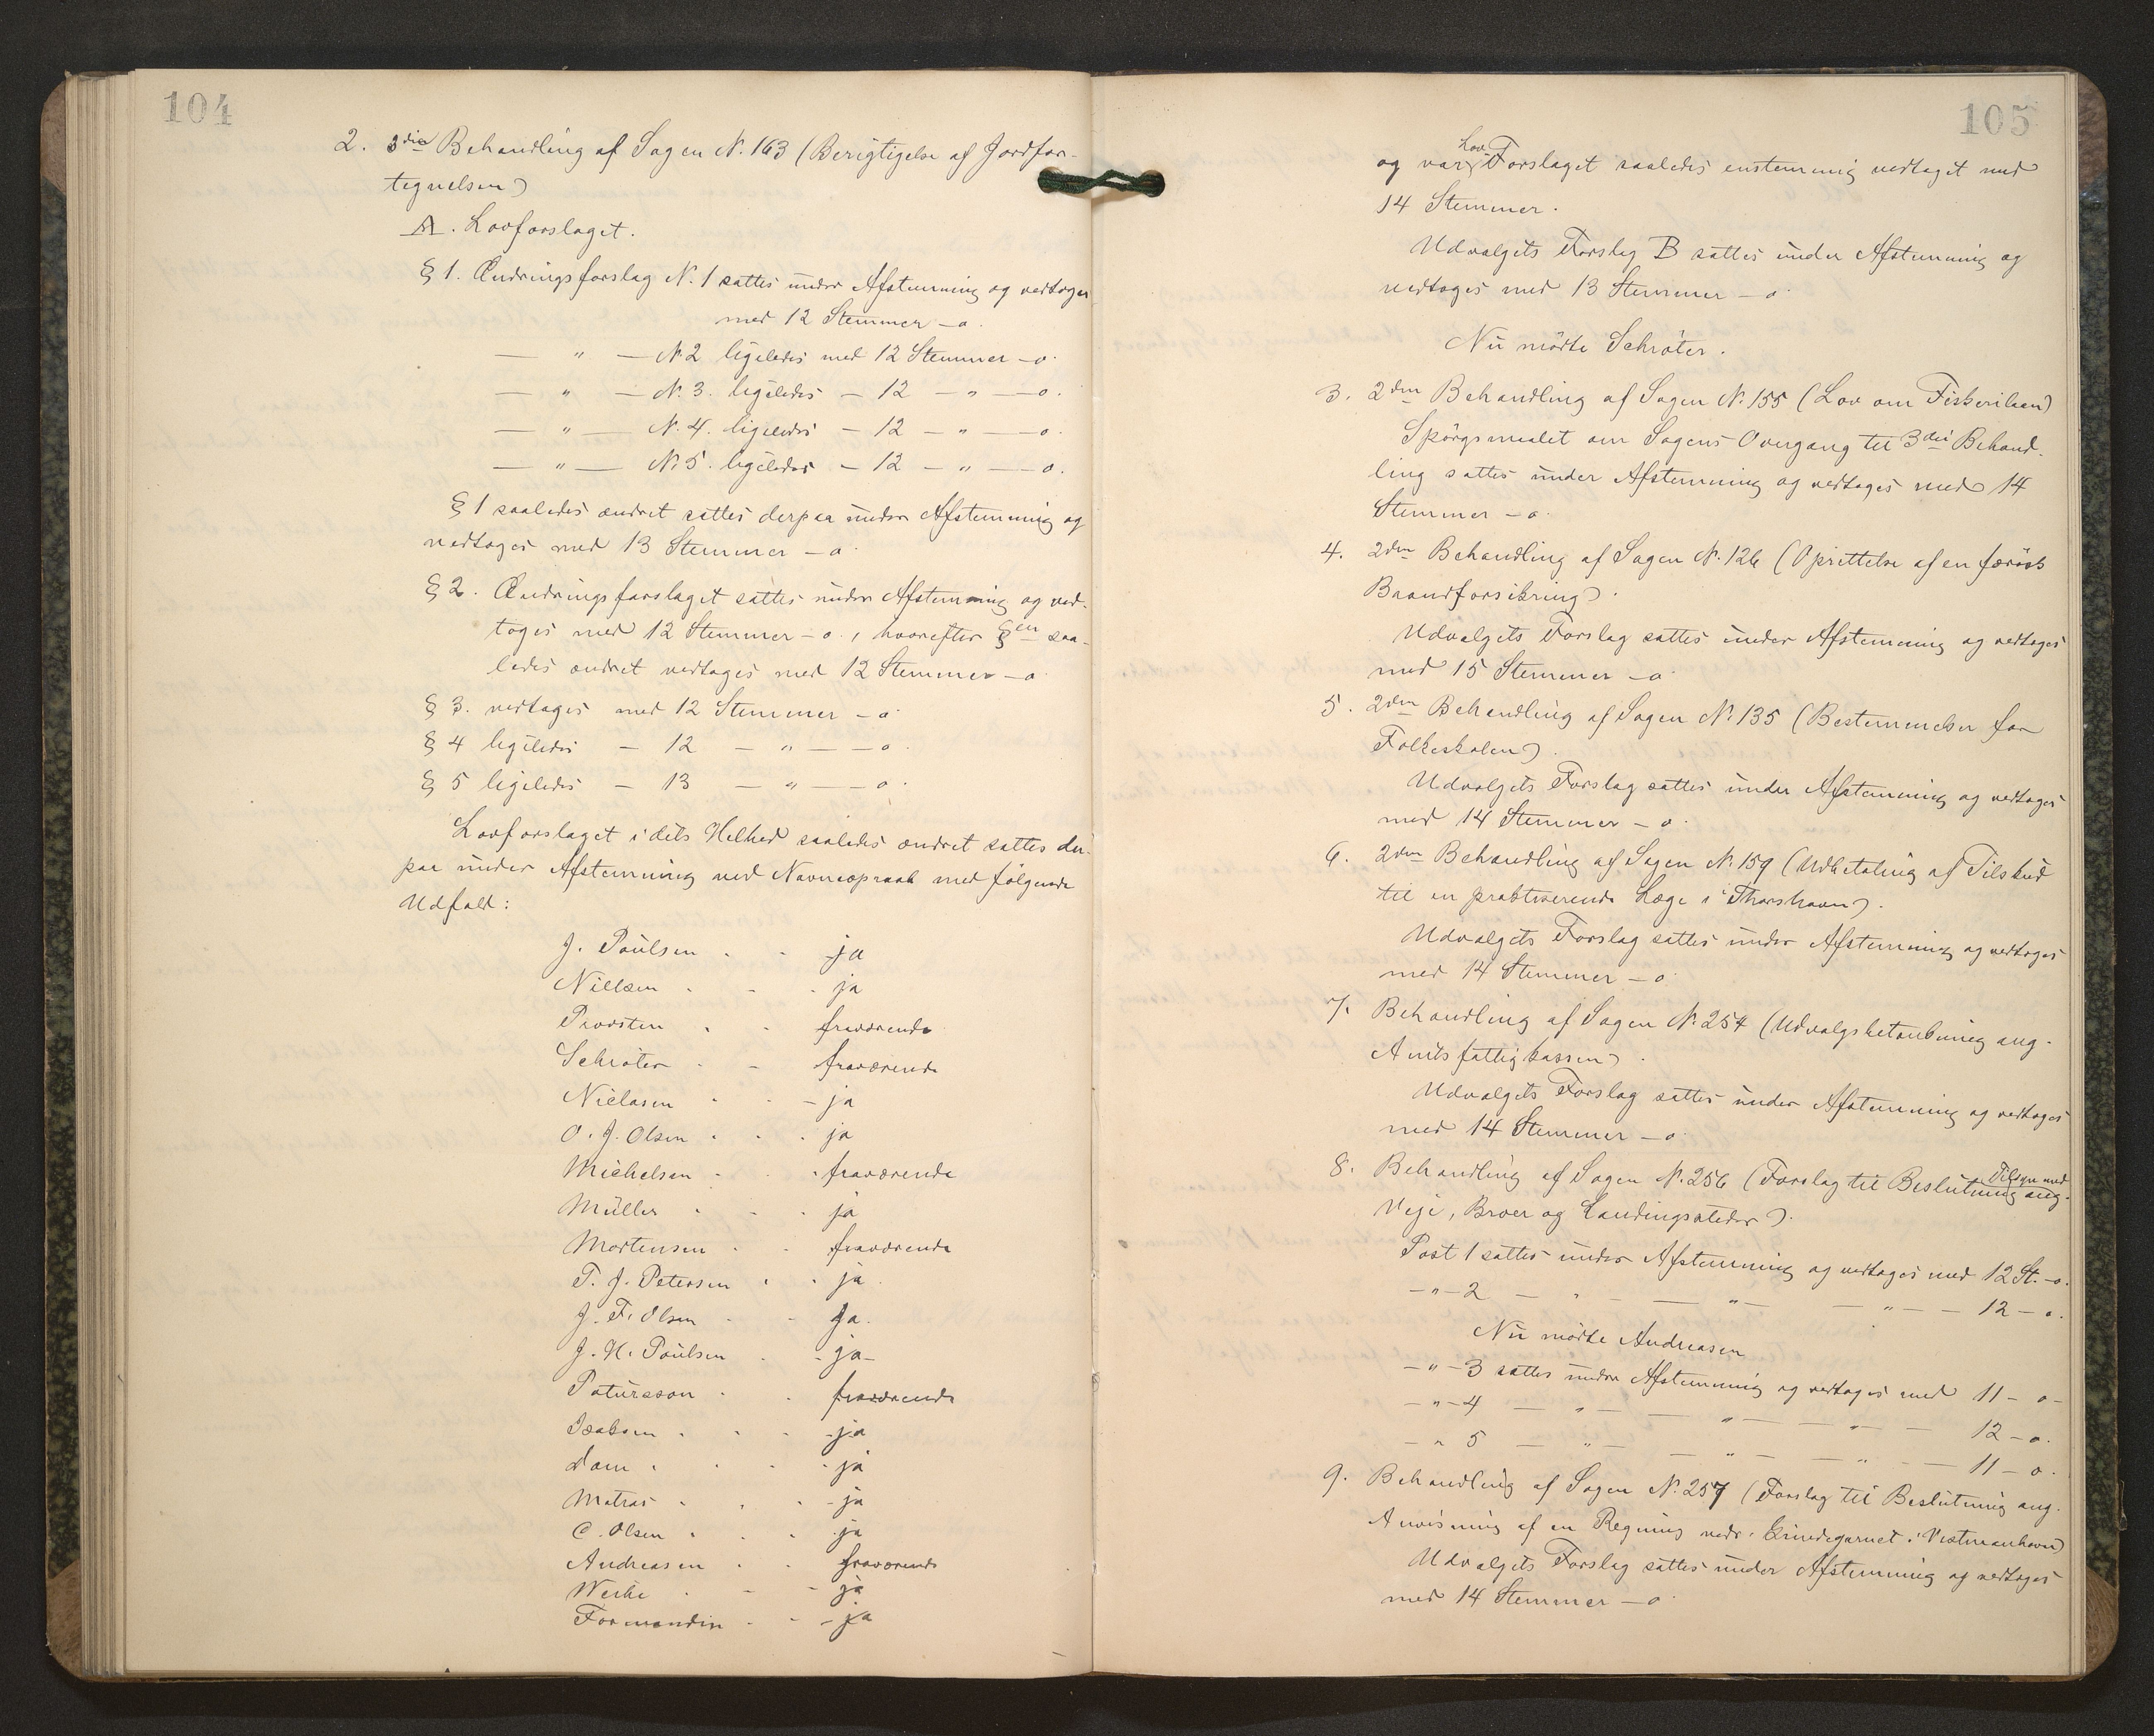 104
2. 3die Behandling af Sagen N. 163 (Berigtigelse af Jordfor-
tegnelsen)
A. Lovforslaget.
§ 1. Ændringsforslag N. 1 sattes under Afstemning og vedtoges
med 12 Stemmer – o.
— " — N. 2 ligeledes med 12 Stemmer – o.
— " — N. 3. ligeledes – 12 – " — o.
— " — N. 4. ligeledes – 12 – " — o.
— " — N. 5. ligeledes – 12 – " — o.
§ 1 saaledes ændret sattes derpaa under Afstemning og
vedtoges med 13 Stemmer – o.
§ 2. Ændringsforslaget sattes under Afstemning og ved-
toges med 12 Stemmer – o., hvorefter §en saa-
ledes ændret vedtoges med 12 Stemmer – o
§ 3. vedtoges med 12 Stemmer – o.
§ 4 ligeledes – 12 – " — o.
§ 5 ligeledes – 13 – " — o.
Lovforslaget i dets Helhed saaledes ændret sattes der-
paa under Afstemning ved Navneopraab med følgende
Udfald:
J. Poulsen - - ja
Nielsen - - - ja
Provsten - - fraværende
Schrøter - - fraværende
Niclasen - - - ja
O. J. Olsen - - - ja
Michelsen - - - fraværende
Müller - - - ja
Mortensen - - fraværende
T. J. Petersen - - ja
J. F. Olsen - - ja.
J. H. Poulsen - - ja -
Patursson - - fraværende
Isaksen - - - ja
Dam - - - - ja
Matras - - - - ja
C. Olsen - - - ja
Andreasen - - fraværende
Weihe - - - ja
Formanden - - - ja
105
og var Lov-Forslaget saaledes enstemmig vedtaget med
14 Stemmer.
Udvalgets Forslag B sattes under Afstemning og
vedtoges med 13 Stemmer – o.
Nu mødte Schrøter.
3. 2den Behandling af Sagen N. 155 (Lov om Fiskerilaan)
Spørgsmaalet om Sagens Overgang til 3die Behand-
ling sattes under Afstemning og vedtoges med 14
Stemmer – o.
4. 2den Behandling af Sagen N. 126 (Oprettelse af en færøsk
Brandforsikring).
Udvalgets Forslag sattes under Afstemning og vedtoges
med 15 Stemmer – o
5. 2den Behandling af Sagen N. 135 (Bestemmelser for
Folkeskolen).
Udvalgets Forslag sattes under Afstemning og vedtoges
med 14 Stemmer – o.
6. 2den Behandling af Sagen N. 159 (Udbetaling af Tilskud
til en praktiserende Læge i Thorshavn).
Udvalgets Forslag sattes under Afstemning og vedtoges
med 14 Stemmer – o
7. Behandling af Sagen N. 254 (Udvalgsbetænkning ang.
Amtsfattigkassen).
Udvalgets Forslag sattes under Afstemning og vedtoges
med 14 Stemmer – o.
8. Behandling af Sagen N. 256 (Forslag til Beslutning ang. Tilsyn med
Veje, Broer og Landingssteder).
Post 1 sattes under Afstemning og vedtoges med 12 St. – o.
– " – 2 — " — — " — — " — — 12 – o.
Nu mødte Andreasen
– " – 3 sattes under Afstemning og vedtoges med 11 – o –
– " – 4 — " — — " — — " — 12 – o.
– " 5 — " — — " — — " — 11 – o.
9. Behandling af Sagen N. 257 (Forslag til Beslutning ang.
Anvisning af en Regning vedr. Grindegarnet i Vestmanhavn)
Udvalgets Forslag sattes under Afstemning og vedtoges
med 14 Stemmer – o